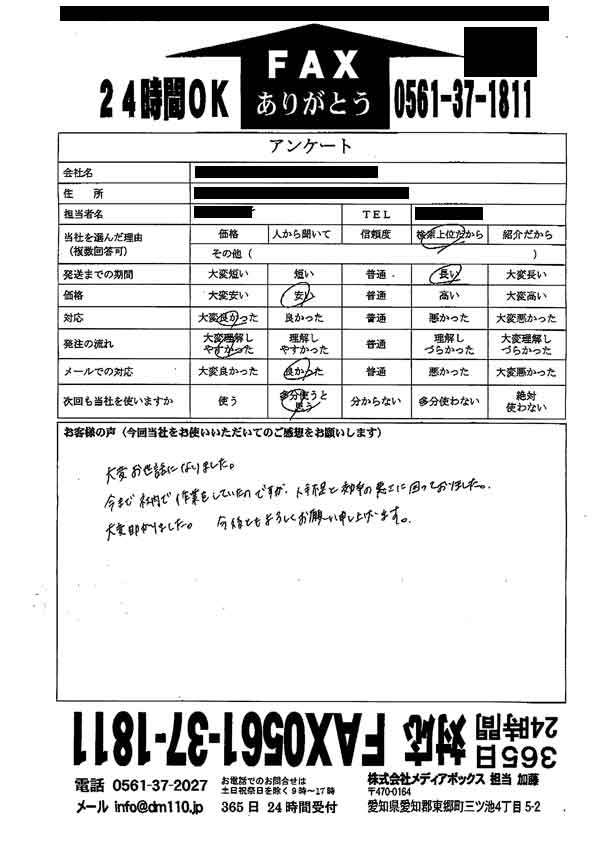 FAX
ありがとう
24時間OK
0561-37-1811
アンケート
会社名
住 所
担当者名 TEL
当社を選んだ理由(複数回答可) 価格 人から聞いて 信頼度 検索上位だから 紹介だから
その他( )
発送までの期間 大変短い 短い 普通 長い 大変長い
価格 大変安い 安い 普通 高い 大変高い
対応 大変良かった 良かった 普通 悪かった 大変悪かった
発注の流れ 大変理解しやすかった 理解しやすかった 普通 理解しづらかった 大変理解しづらかった
メールでの対応 大変良かった 良かった 普通 悪かった 大変悪かった
次回も当社を使いますか 使う 多分使うと思う 分からない 多分使わない 絶対使わない
お客様の声(今回当社をお使いいただいてのご感想をお願いします)
大変お世話になりました。
今まで社内で作業をしていたのですが、人手不足と効率の悪さに困っておりました。
大変助かりました。 今後ともよろしくお願い申し上げます。
365日24時間対応 FAX0561-37-1811
電話 0561-37-2027 お電話でのお問合せは土日祝祭日を除く9時~17時
メール info@dm110.jp 365日24時間受付
株式会社メディアボックス 担当 加藤
〒470-0164
愛知県愛知郡東郷町三ツ池4丁目5-2